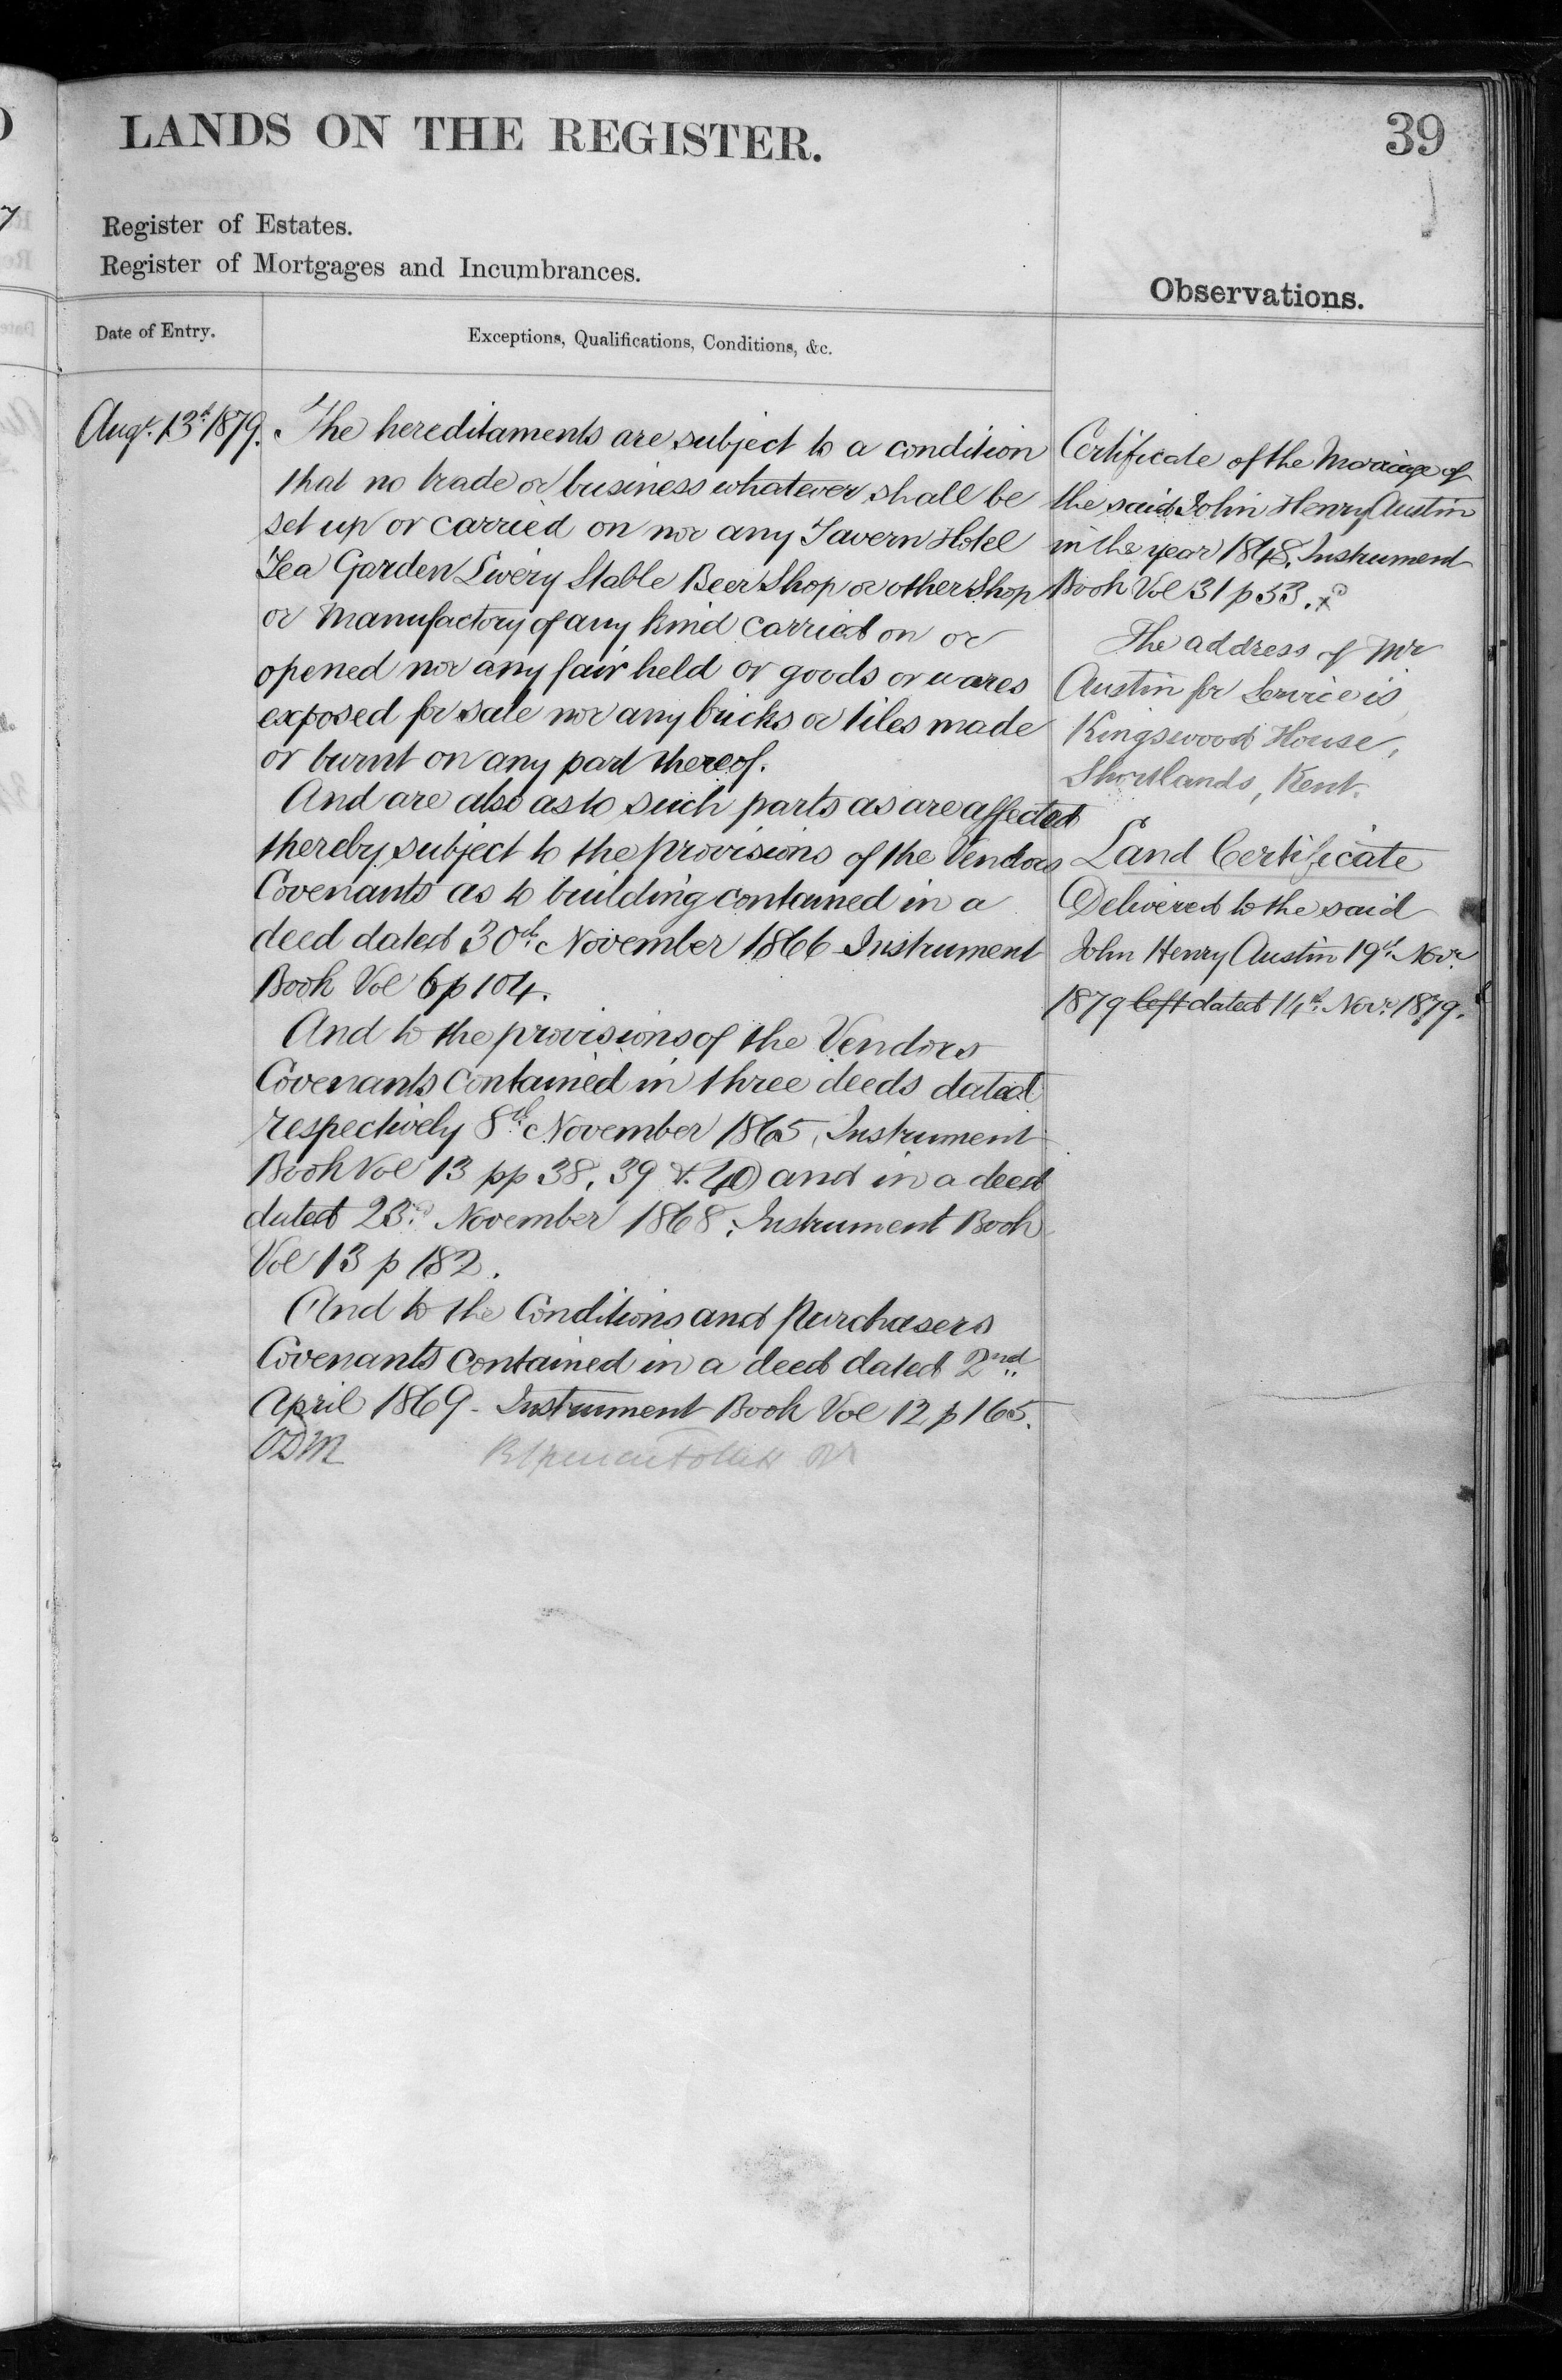 LANDS ON THE REGISTER.
39
Register of Estates.
Register of Mortgages and Incumbrances.
Observations.
Date of Entry.
Exceptions, Qualifications, Conditions, &c.
Augt. 13th 1879.
The hereditaments are subject to a condition
that no trade or business whatever shall be
set up or carried on nor any Tavern Hotel
Tea Garden Livery Stable Beer Shop or other Shop
or Manufactory of any kind carried on or
opened nor any fair held or goods or wares
exposed for sale nor any bricks or tiles made
or burnt on any part thereof.
And are also as to such parts as are affected
thereby subject to the provisions of the Vendors
Covenants as to building contained in a
deed dated 30th November 1866 Instrument
Book Vol 6 p 104.
And to the provisions of the Vendors
Covenants contained in three deeds dated
respectively 8th November 1865, Instrument
Book Vol 13 pp 38, 39 & 40 and in a deed
dated 23rd November 1868, Instrument Book
Vol 13 p 182.
And to the Conditions and Purchasers
Covenants contained in a deed dated 2nd
April 1869 - Instrument Book Vol 12 p 165.
Certificate of the Marriage of
the said John Henry Austin
in the year 1848, Instrument
Book Vol 31 p 53.
The address of Mr
Austin for Service is
Kingswood House,
Shortlands, Kent.
Land Certificate
Delivered to the said
John Henry Austin 19th Novr.
1879 left dated 14th Novr. 1879.